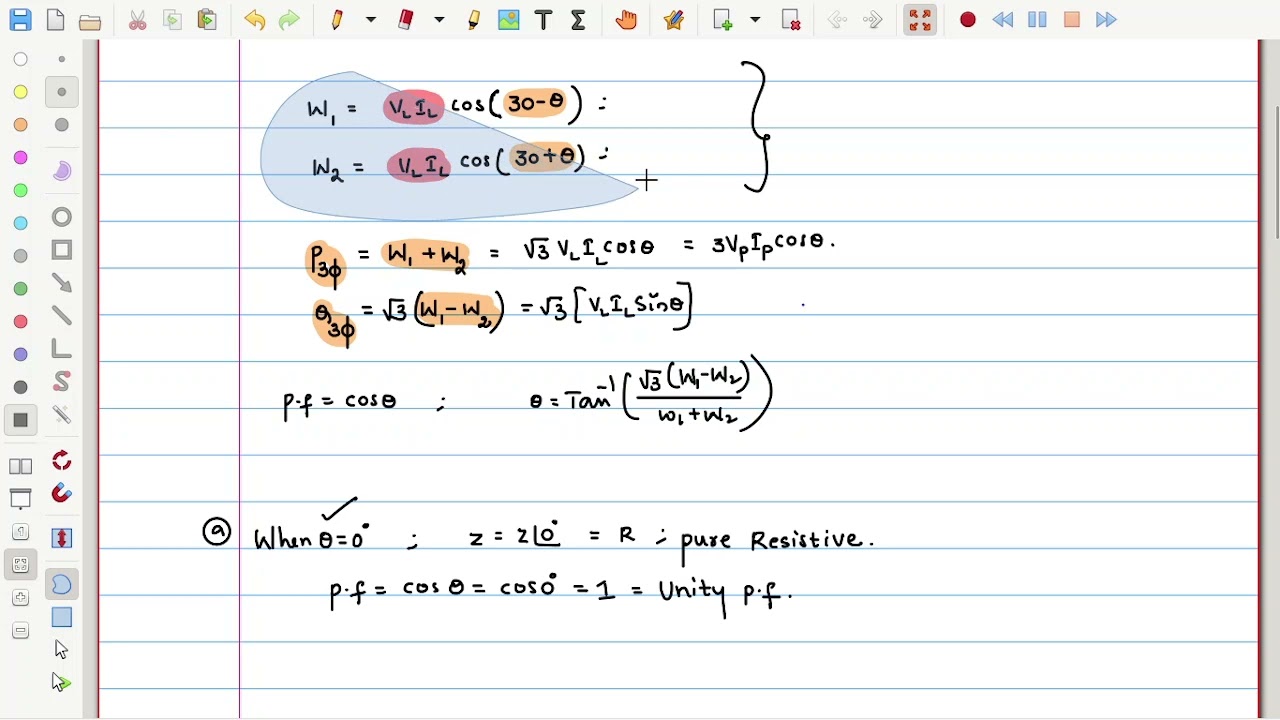 W₁ = V_L I_L cos(30-θ) :
W₂ = V_L I_L cos(30+θ) :
P₃ϕ = W₁ + W₂ = √3 V_L I_L cosθ = 3V_P I_P cosθ.
Q₃ϕ = √3 (W₁ - W₂) = √3 [V_L I_L sinθ]
p.f = cosθ ; θ = Tan⁻¹ (√3 (W₁-W₂) / W₁+W₂)
ⓐ When θ=0° ; z = z∠0° = R ; pure Resistive.
p.f = cos θ = cos0° = 1 = Unity p.f.